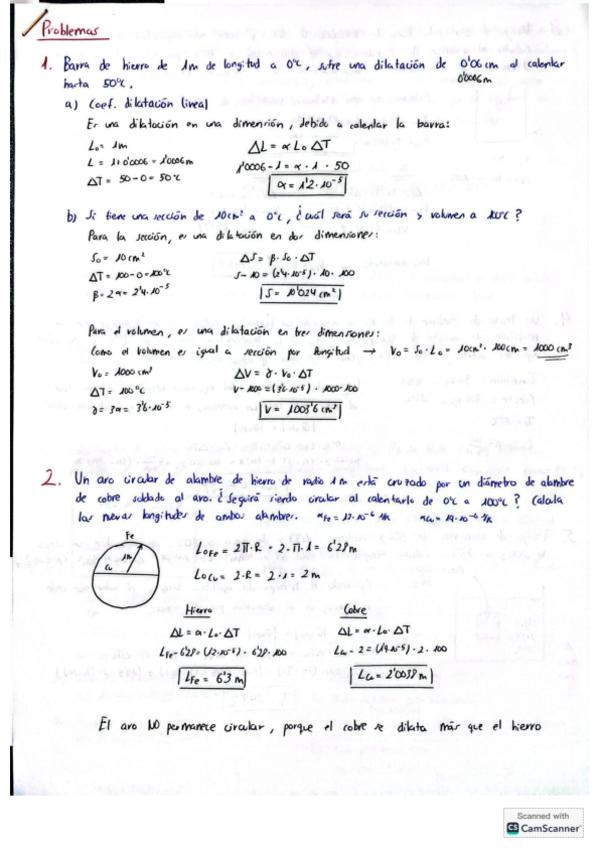 Problemas
1. Barra de hierro de 1m de longitud a 0ºC, sufre una dilatación de 0'06 cm al calentar
0'0006m
hasta 50ºC.
a) Coef. dilatación lineal
Es una dilatación en una dimensión, debido a calentar la barra:
L₀ = 1m ΔL = α L₀ ΔT
L = 1+0'0006 = 1'0006m 1'0006 - 1 = α · 1 · 50
ΔT = 50-0 = 50ºC α = 1'2·10⁻⁵
b) Si tiene una sección de 10cm² a 0ºC, ¿cuál será su sección y volumen a 100ºC?
Para la sección, es una dilatación en dos dimensiones:
S₀ = 10cm² ΔS = β· S₀ · ΔT
ΔT = 100-0 = 100ºC S - 10 = (2'4·10⁻⁵) · 10 · 100
β = 2α = 2'4·10⁻⁵ S = 10'024 cm²
Para el volumen, es una dilatación en tres dimensiones:
Como el volumen es igual a sección por longitud → V₀ = S₀ · L₀ = 10cm² · 100cm = 1000 cm³
V₀ = 1000 cm³ ΔV = γ · V₀ · ΔT
ΔT = 100ºC V - 1000 = (3'6·10⁻⁵) · 1000·100
γ = 3α = 3'6·10⁻⁵ V = 1003'6 cm³
2. Un aro circular de alambre de hierro de radio 1m está cruzado por un diámetro de alambre
de cobre soldado al aro. ¿Seguirá siendo circular al calentarlo de 0ºC a 100ºC? Calcula
las nuevas longitudes de ambos alambres. αFe = 12·10⁻⁶ αCu = 19·10⁻⁶
Fe
1m
Cu
L₀Fe = 2π·R = 2·π·1 = 6'28m
L₀Cu = 2·R = 2·1 = 2m
Hierro Cobre
ΔL = α·L₀·ΔT ΔL = α·L₀·ΔT
LFe - 6'28 = (12·10⁻⁶) · 6'28 · 100 LCu - 2 = (19·10⁻⁶) · 2 · 100
LFe = 6'3 m LCu = 2'0038 m
El aro NO permanece circular, porque el cobre se dilata más que el hierro
Scanned with
CS CamScanner